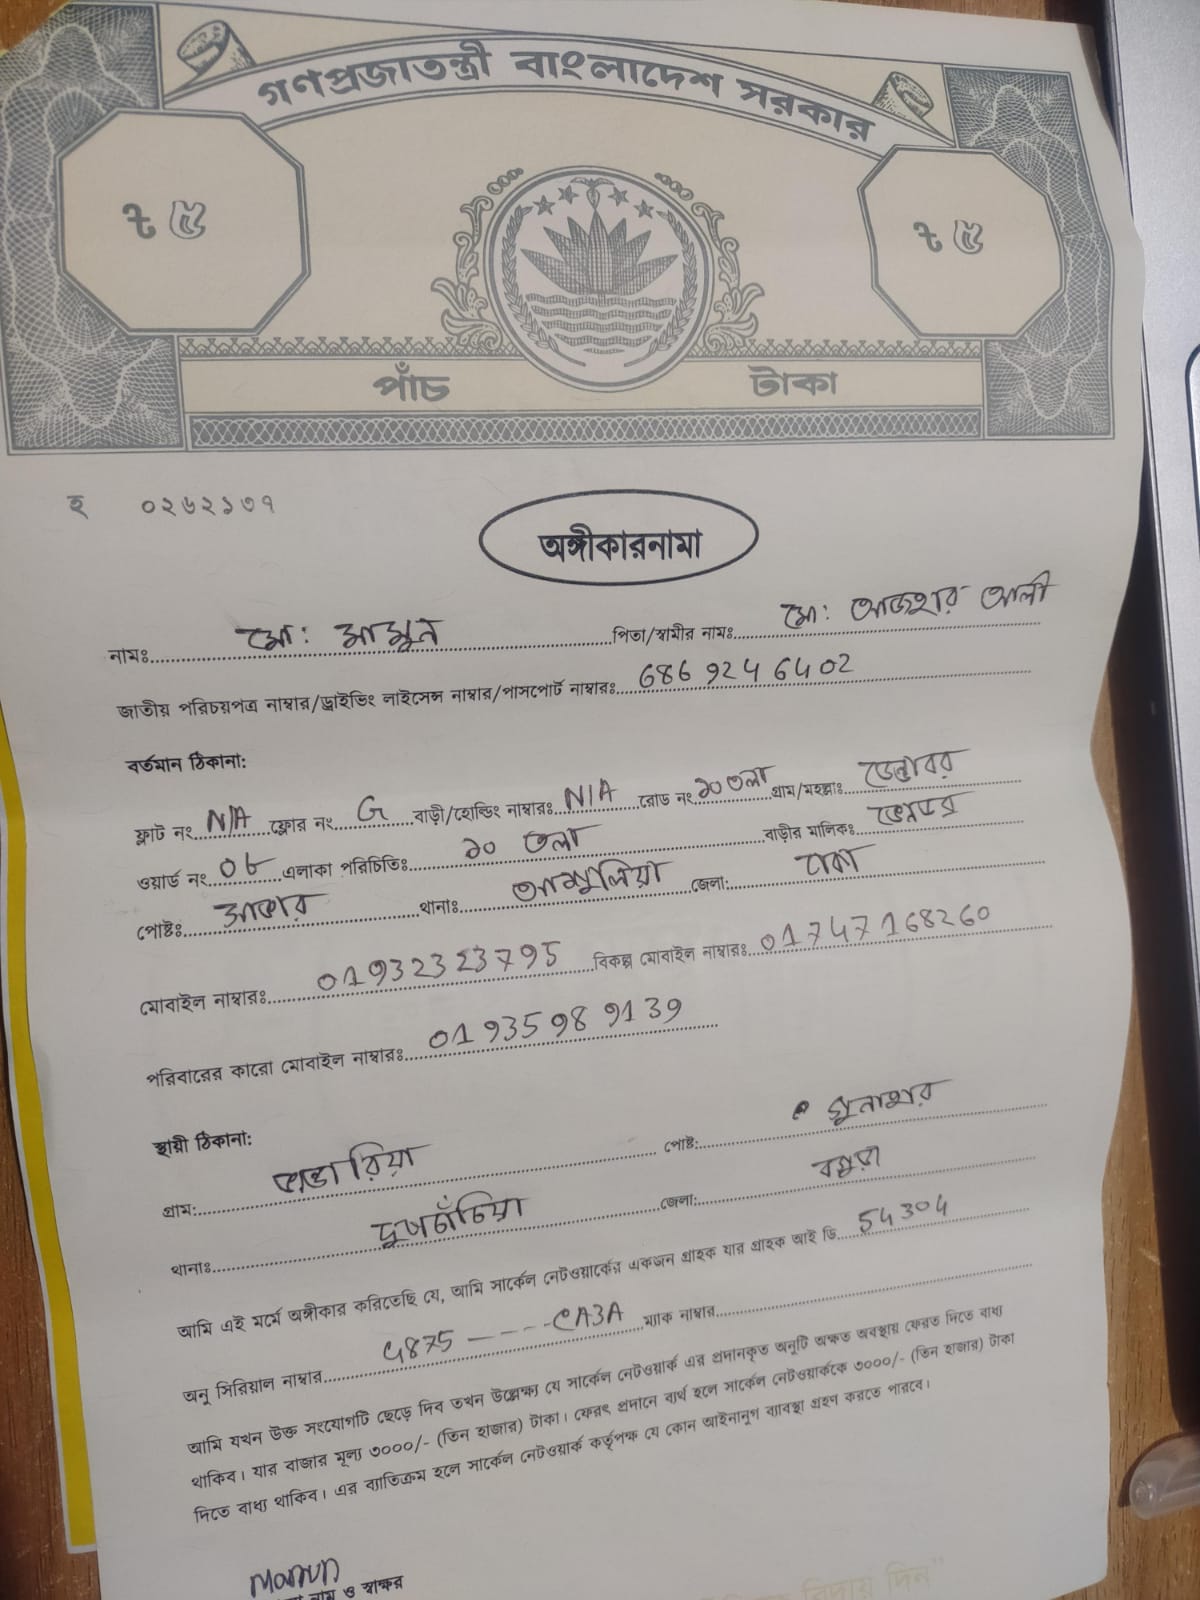 গণপ্রজাতন্ত্রী বাংলাদেশ সরকার
৳ ৫ ৳ ৫
পাঁচ টাকা
হ ০২৬২১৩৭
অঙ্গীকারনামা
নামঃ মো: মামুন পিতা/স্বামীর নামঃ মো: আজহার আলী
জাতীয় পরিচয়পত্র নাম্বার/ড্রাইভিং লাইসেন্স নাম্বার/পাসপোর্ট নাম্বারঃ 6869246402
বর্তমান ঠিকানা:
ফ্লাট নং N/A ফ্লোর নং G বাড়ী/হোল্ডিং নাম্বারঃ N/A রোড নং ১০ তলা গ্রাম/মহল্লাঃ
ওয়ার্ড নং 08 এলাকা পরিচিতিঃ ১০ তলা বাড়ীর মালিকঃ
পোষ্টঃ থানাঃ আশুলিয়া জেলা: ঢাকা
মোবাইল নাম্বারঃ 01932323795 বিকল্প মোবাইল নাম্বারঃ 01747168260
পরিবারের কারো মোবাইল নাম্বারঃ 01935989139
স্থায়ী ঠিকানা:
গ্রাম: পোষ্ট:
থানাঃ দুপচাঁচিয়া জেলা: বগুড়া
আমি এই মর্মে অঙ্গীকার করিতেছি যে, আমি সার্কেল নেটওয়ার্কের একজন গ্রাহক যার গ্রাহক আই ডি 54304
অনু সিরিয়াল নাম্বার 4875 ---- CA3A ম্যাক নাম্বার
আমি যখন উক্ত সংযোগটি ছেড়ে দিব তখন উল্লেক্ষ্য যে সার্কেল নেটওয়ার্ক এর প্রদানকৃত অনুটি অক্ষত অবস্থায় ফেরত দিতে বাধ্য
থাকিব। যার বাজার মূল্য ৩০০০/- (তিন হাজার) টাকা। ফেরৎ প্রদানে ব্যর্থ হলে সার্কেল নেটওয়ার্ককে ৩০০০/- (তিন হাজার) টাকা
দিতে বাধ্য থাকিব। এর ব্যাতিক্রম হলে সার্কেল নেটওয়ার্ক কর্তৃপক্ষ যে কোন আইনানুগ ব্যাবস্থা গ্রহণ করতে পারবে।
Mamun
নাম ও স্বাক্ষর
বিদায় দিন"